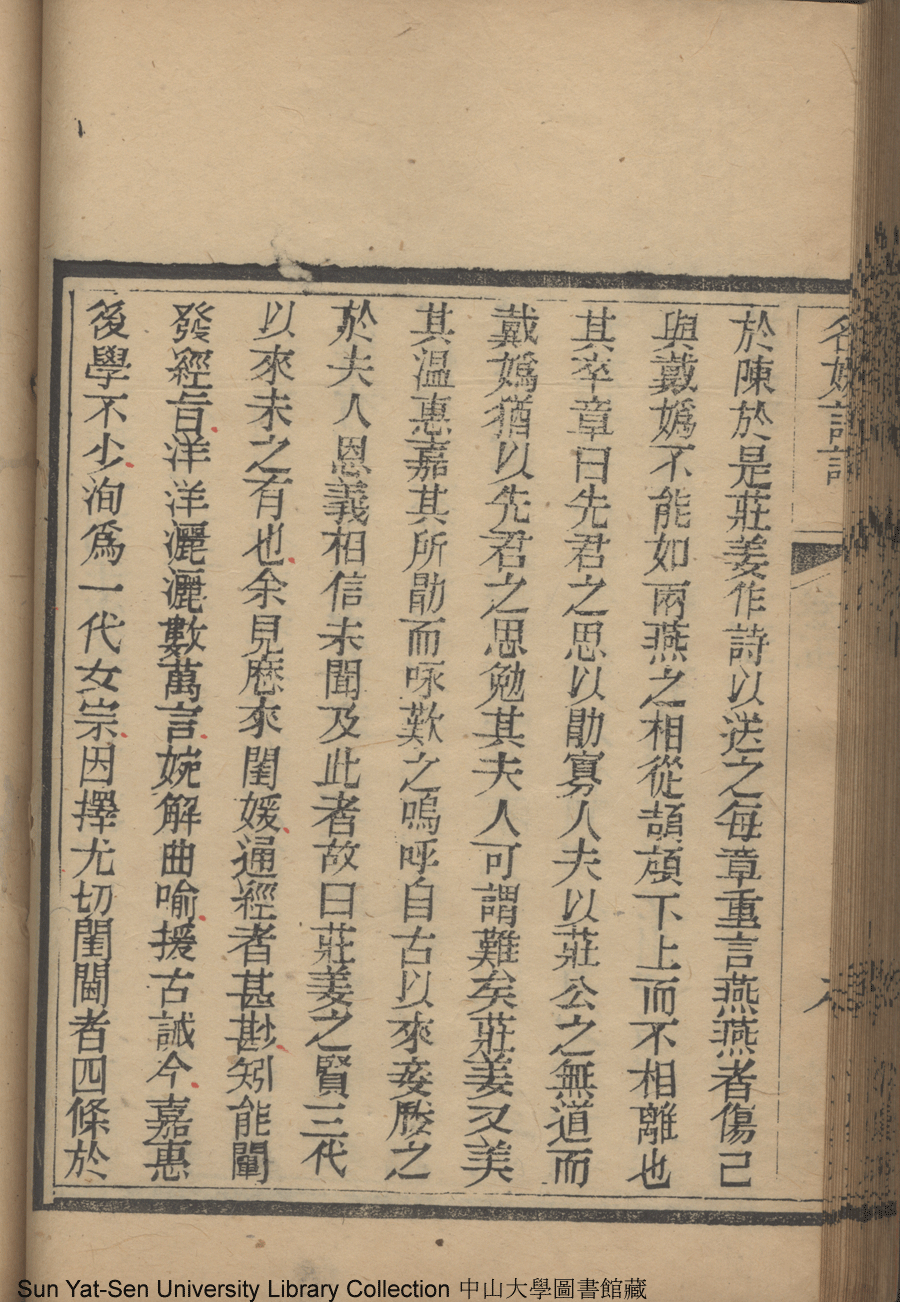 名媛詩話
於陳於是莊姜作詩以送之每章重言燕燕者傷己
與戴嬀不能如兩燕之相從頡頏下上而不相離也
其卒章曰先君之思以勖寡人夫以莊公之無道而
戴嬀猶以先君之思勉其夫人可謂難矣莊姜又美
其溫惠嘉其所勖而咏歎之嗚呼自古以來妾媵之
於夫人恩義相信未聞及此者故曰莊姜之賢三代
以來未之有也余見歷來閨媛通經者甚尠矧能闡
發經旨洋洋灑灑數萬言婉解曲喻援古誡今嘉惠
後學不少洵爲一代女宗因擇尤切閨閫者四條於
Sun Yat-Sen University Library Collection 中山大學圖書館藏